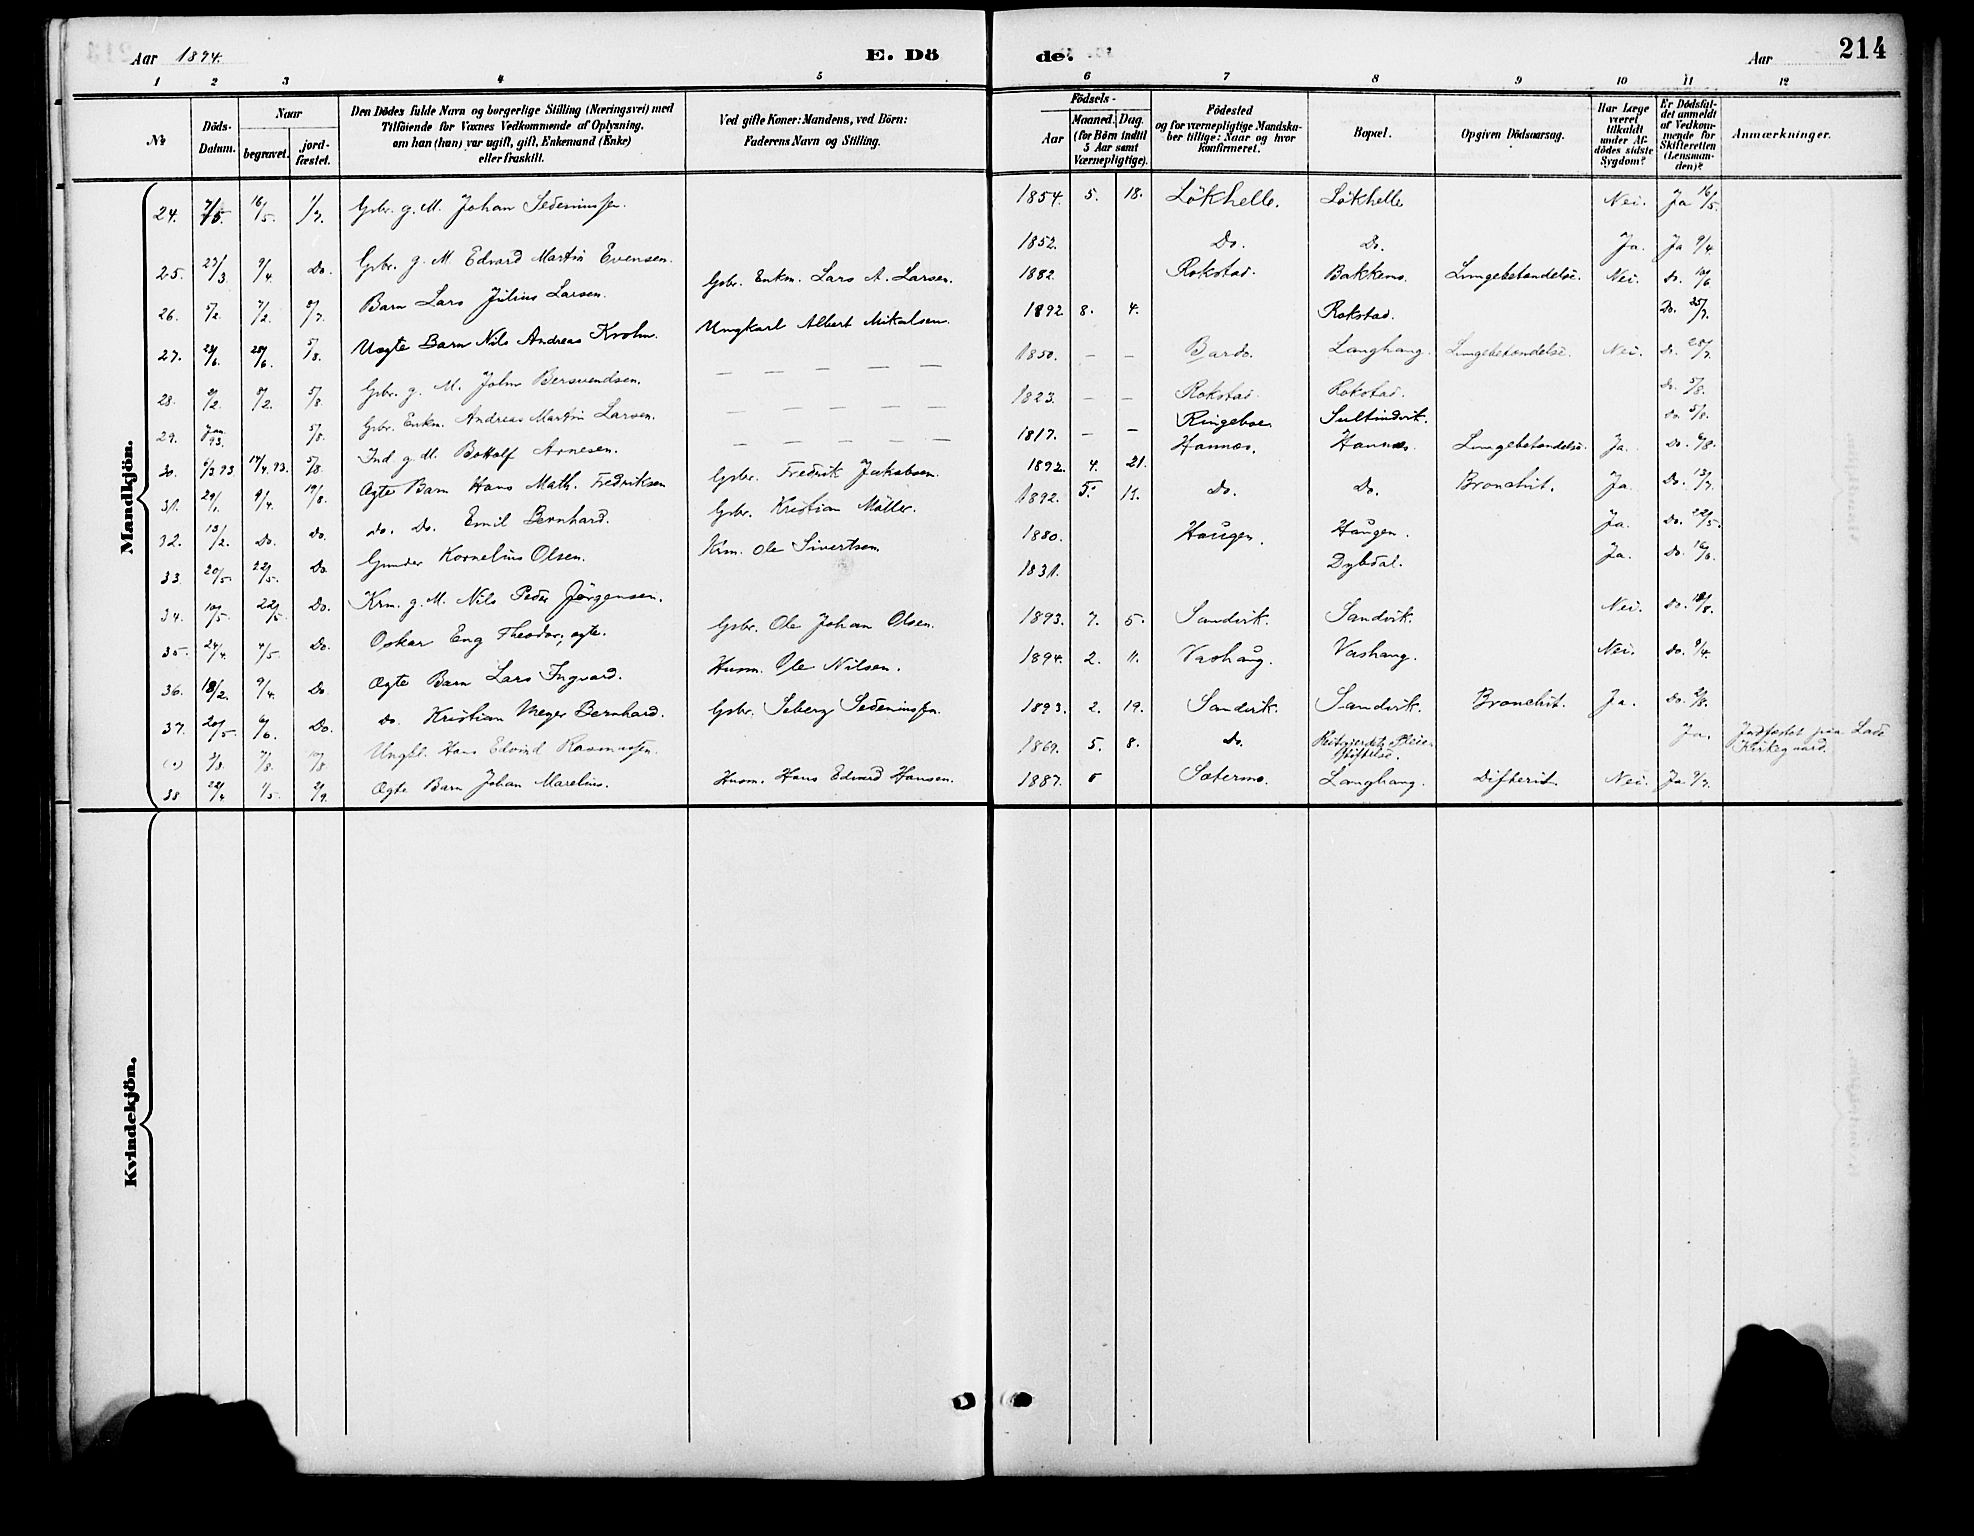 Aar 1894. E. Dö de. Aar 214
1 2 3 4 5 6 7 8 9 10 11 12
№ Döds-Datum. Naar begravet. jordfæstet. Den Dödes fulde Navn og borgerlige Stilling (Næringsvei) med Tilföiende for Voxnes Vedkommende af Oplysning, om han (hun) var ugift, gift, Enkemand (Enke) eller fraskilt. Ved gifte Koner: Mandens, ved Börn: Faderens Navn og Stilling. Födsels- Aar Maaned. Dag. (for Börn indtil 5 Aar samt Værnepligtige). Födested og for værnepligtige Mandskaber tillige: Naar og hvor konfirmeret. Bopæl. Opgiven Dödsaarsag. Har Læge været tilkaldt under Afdödes sidste Sygdom? Er Dödsfaldet anmeldt af Vedkommende for Skifteretten (Lensmanden)? Anmærkninger.
Mandkjön.
24. 7/5. 16/5 1/7. Gsbr. g. M. Johan Sedeniussen. 1854. 5. 18. Lökhelle. Lökhelle Nei. Ja 16/5.
25. 23/3 9/4. Do. Gsbr. g. M Edvard Martin Evensen. 1852. Do. Do. Ja. Ja 9/4.
26. 5/2. 7/2. 8/7 Barn Lars Julius Larsen. Gsbr. Enkm. Lars A. Larsen. 1882. Rokstad. Bakkemo. Lungebetændelse. Nei. Do. 10/6
27. 23/6. 28/6. 5/8. Uægte Barn Nils Andreas Krohn. Ungkarl Albert Mikalsen. 1892 8. 4. Rokstad. Do. 25/7.
28. 2/2. 8/2. 5/8 Gsbr. g. M. John Bersvendsen. — — — — — 1850. — — Bardo. Langhang. Lungebetændelse. Nei. Do. 28/7.
29. Jan 93. 5/8. Gsbr. Enkm. Andreas Martin Larsen. — — — — — 1823. — — Rokstad. Rokstad. Do. 5/8.
30. 6/3 93 14/4. 93. 5/8 Ind. g. M. Bottolf Arnesen. — — — — — 1817. — — Ringeboe. Sultindvik. Do. 5/8.
31. 29/1. 9/4. 19/8. Ægte Barn Hans Math. Fedriksen Gsbr. Fredrik Jakobsen. 1892. 4. 21. Hannæs. Hannæs. Lungebetændelse. Ja. Do. 6/8.
32. 13/2. Do. Do. Do. Do. Emil Bernhard. Gsbr. Kristian Möller. 1892. 5. 11. Do. Do. Bronchit. Ja. Do. 13/7.
33. 20/5. 22/5. Do. Gunder Kornelius Olsen. Krm. Ole Sivertsen. 1880. Haugen. Haugen. Ja. Do. 22/5.
34. 10/5 22/5 Do. Krm. g. M. Nils Peder Jörgensen. 1831. Dybdal. Ja. Do. 16/6.
35. 24/4. 4/5. Do. Oskar Eng Theodor, ægte. Gsbr. Ole Johan Olsen. 1893. 7. 5. Sandvik. Sandvik. Nei. Do. 18/8.
36. 18/2. 9/4. Do Ægte Barn Lars Ingvard. Husm. Ole Nilsen. 1894. 2. 11. Vashaug. Vashaug. Nei. Do. 9/4.
37. 20/5 6/6. Do. Do. Kristian Meyer Bernhard. Gsbr. Seberg Sedeniussen. 1893. 2. 19. Sandvik. Sandvik. Bronchit. Ja. Do. 2/8.
3/8 7/8. 10/8 Ungkl. Hans Edvind Rasmussen. 1869. 5. 8. Do. Ja. Jordfæstet paa Lade Kirkegaard.
38 22/4 1/5. 2/9. Ægte Barn Johan Marelius. Husm. Hans Edvard Hansen. 1887. 5 Sætermo. Langhang. Difterit. Nei. Ja 9/7.
Kvindekjön.